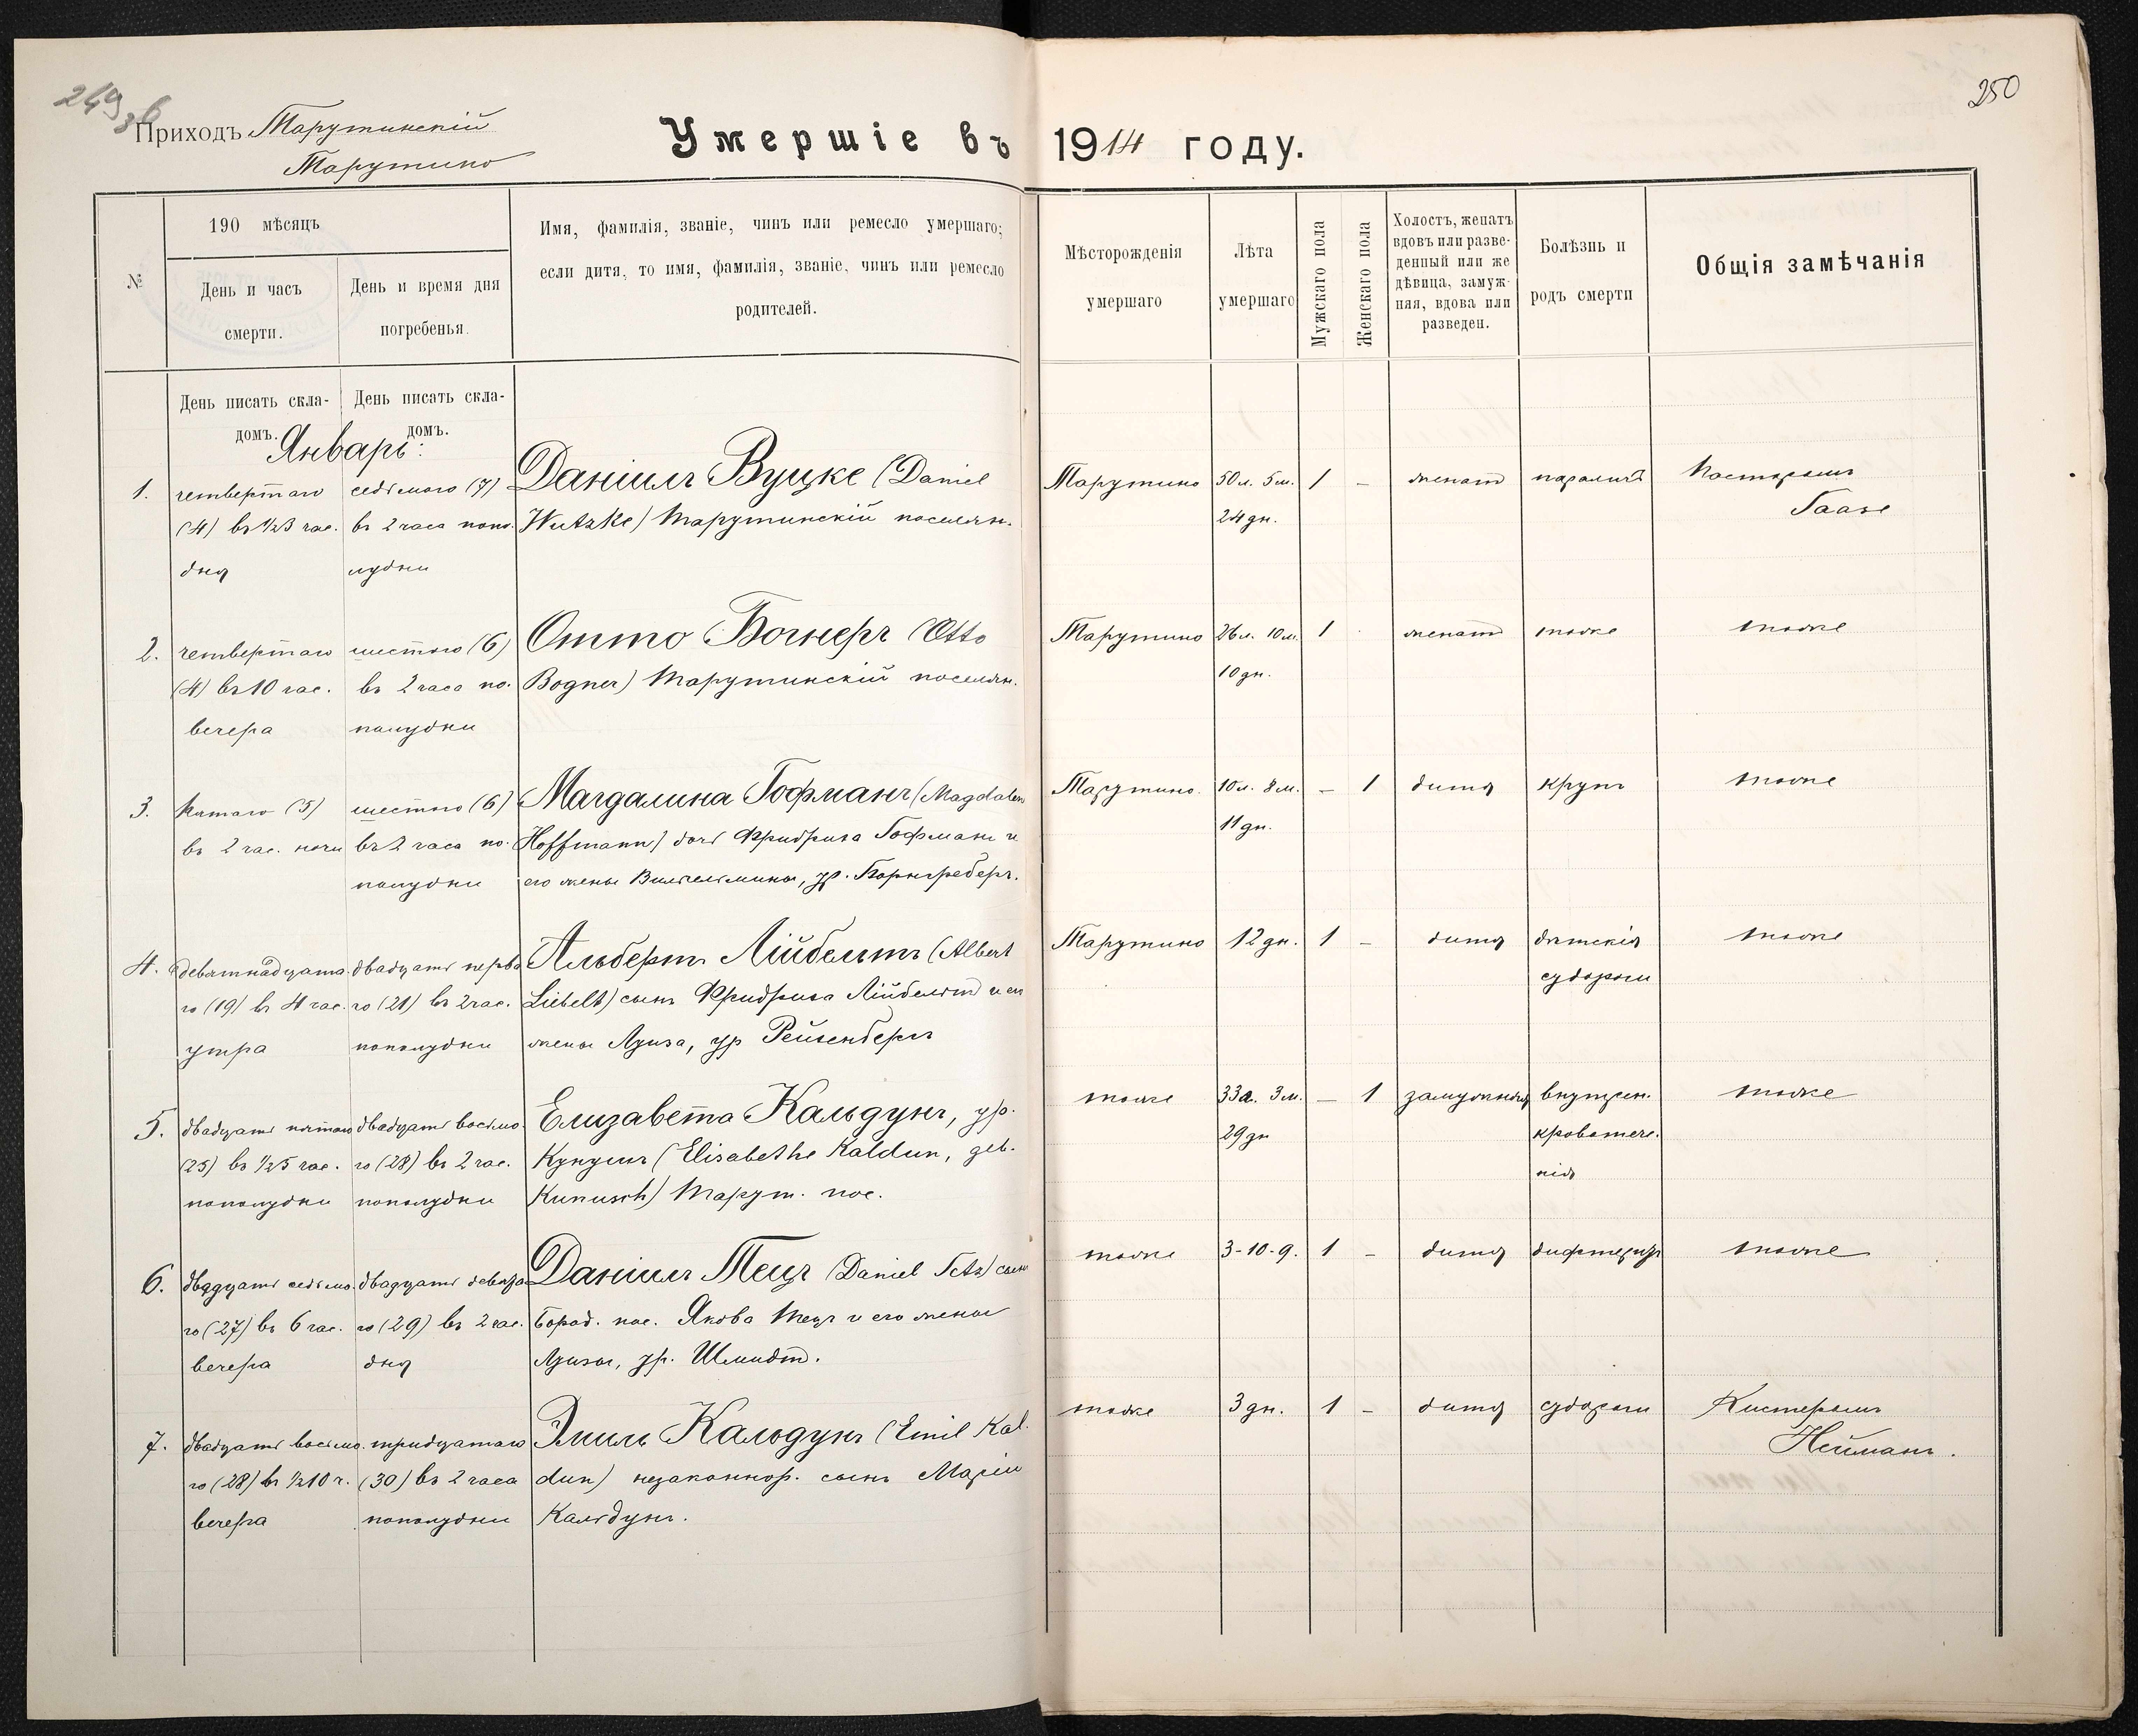 249 об
250
Приходъ Тарутинскій
Тарутино
Умершіе въ 1914 году.
№
190 мѣсяцъ
День и часъ смерти.
День и время дня погребенья.
Имя, фамилія, званіе, чинъ или ремесло умершаго;
если дитя, то имя, фамилія, званіе, чинъ или ремесло
родителей.
Мѣсторожденія
умершаго
Лѣта
умершаго
Мужскаго пола
Женскаго пола
Холостъ, женатъ
вдовъ или разве-
денный или же
дѣвица, замуж-
няя, вдова или
разведен.
Болѣзнь и
родъ смерти
Общія замѣчанія
День писать скла-
домъ.
День писать скла-
домъ.
Январь:
1. четвертаго седьмаго (7) Даніилъ Вуцке (Daniel Тарутино 50 л. 5 м. 1 – женат параличъ Пасторомъ
(4) въ ½3 час. въ 2 часа попо- Wutzke) Тарутинскій поселян. 24 дн. Гаазе
дня лудни
2. четвертаго шестого (6) Отто Богнеръ (Otto Тарутино 26 л. 10 м. 1 женатъ тоже тоже
(4) въ 10 час. въ 2 часа по- Bogner) Тарутинскій поселян. 10 дн.
вечера полудни
3. Пятаго (5) шестого (6) Магдалина Гофманъ (Magdalena Тарутино. 10 л. 8 м. – 1 дитя крупъ тоже
въ 2 час. ночи въ 2 часа по- Hoffmann) дочь Фридриха Гофманъ и 11 дн.
полудни его жены Вильгельмины, ур. Борнгреберъ.
4. девятнадцата- двадцать перва- Альбертъ Лійбельтъ (Albert Тарутино 12 дн. 1 – дитя дѣтскія тоже
го (19) въ 4 час. го (21) въ 2 час. Liebelt) сынъ Фридриха Лійбельтъ и ег судороги
утра пополудни жены Луиза, ур Рейзенбергъ
5. двадцать пятаго двадцать восьмо- Елизавета Кальдунъ, ур. тоже 33 л. 3 м. – 1 замужняя внутрен. тоже
(25) въ ½5 час. го (28) въ 2 час. Кунушъ (Elisabethe Kaldun, geb. 29 дн кровотече-
пополудни пополудни Kunusch) Тарут. пос. нія
6. двадцать седьмо- двадцать девята- Даніилъ Тецъ (Daniel Tetz) сынъ тоже 3-10-9. 1 – дитя дифтеритъ тоже
го (27) въ 6 час. го (29) въ 2 час. Бород. пос. Якова Тецъ и его жены
вечера дня Луизы, ур. Шмидтъ.
7. двадцать восьмо- тридцатаго Эмиль Кальдунъ (Emil Kal- тоже 3 дн. 1 – дитя судороги Кистеромъ
го (28) въ ½10 ч. (30) въ 2 часа dun) незаконнор. сынъ Маріи Нейманъ.
вечера пополудни Кальдунъ.